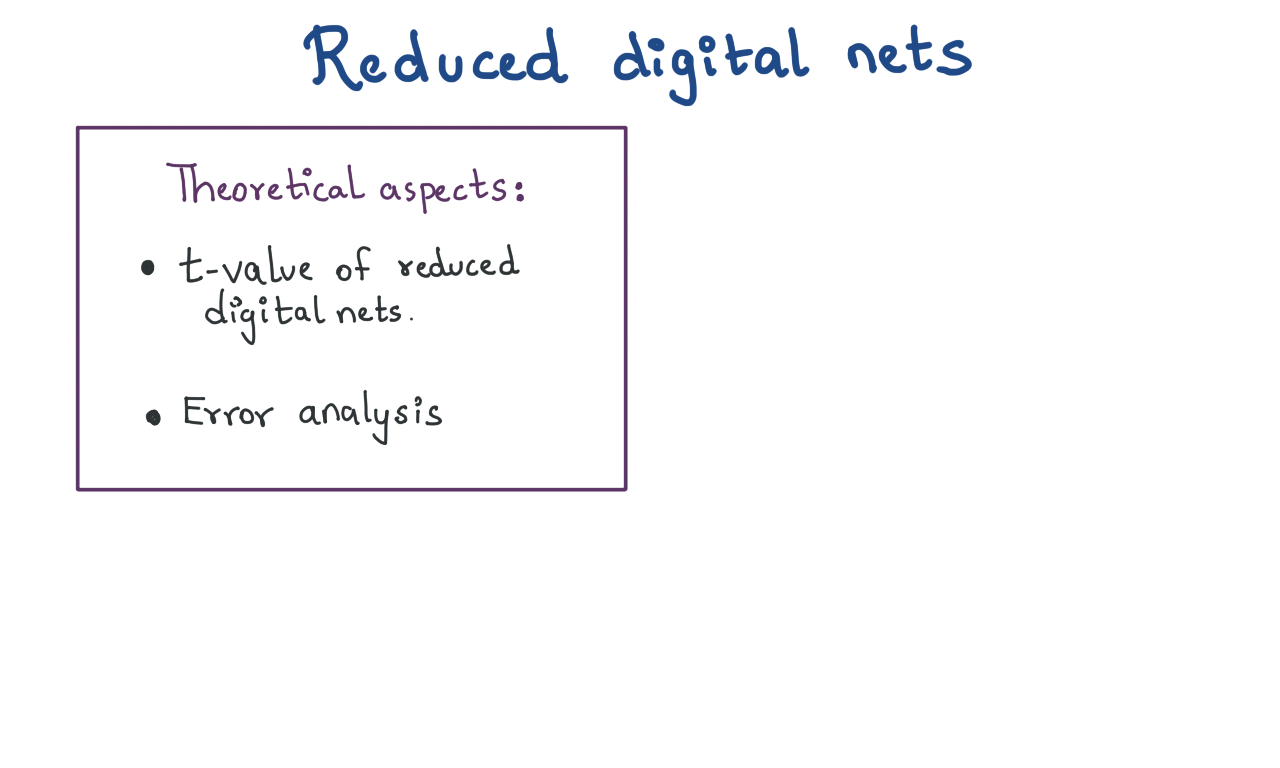 Reduced digital nets
Theoretical aspects:
• t-value of reduced
digital nets.
• Error analysis